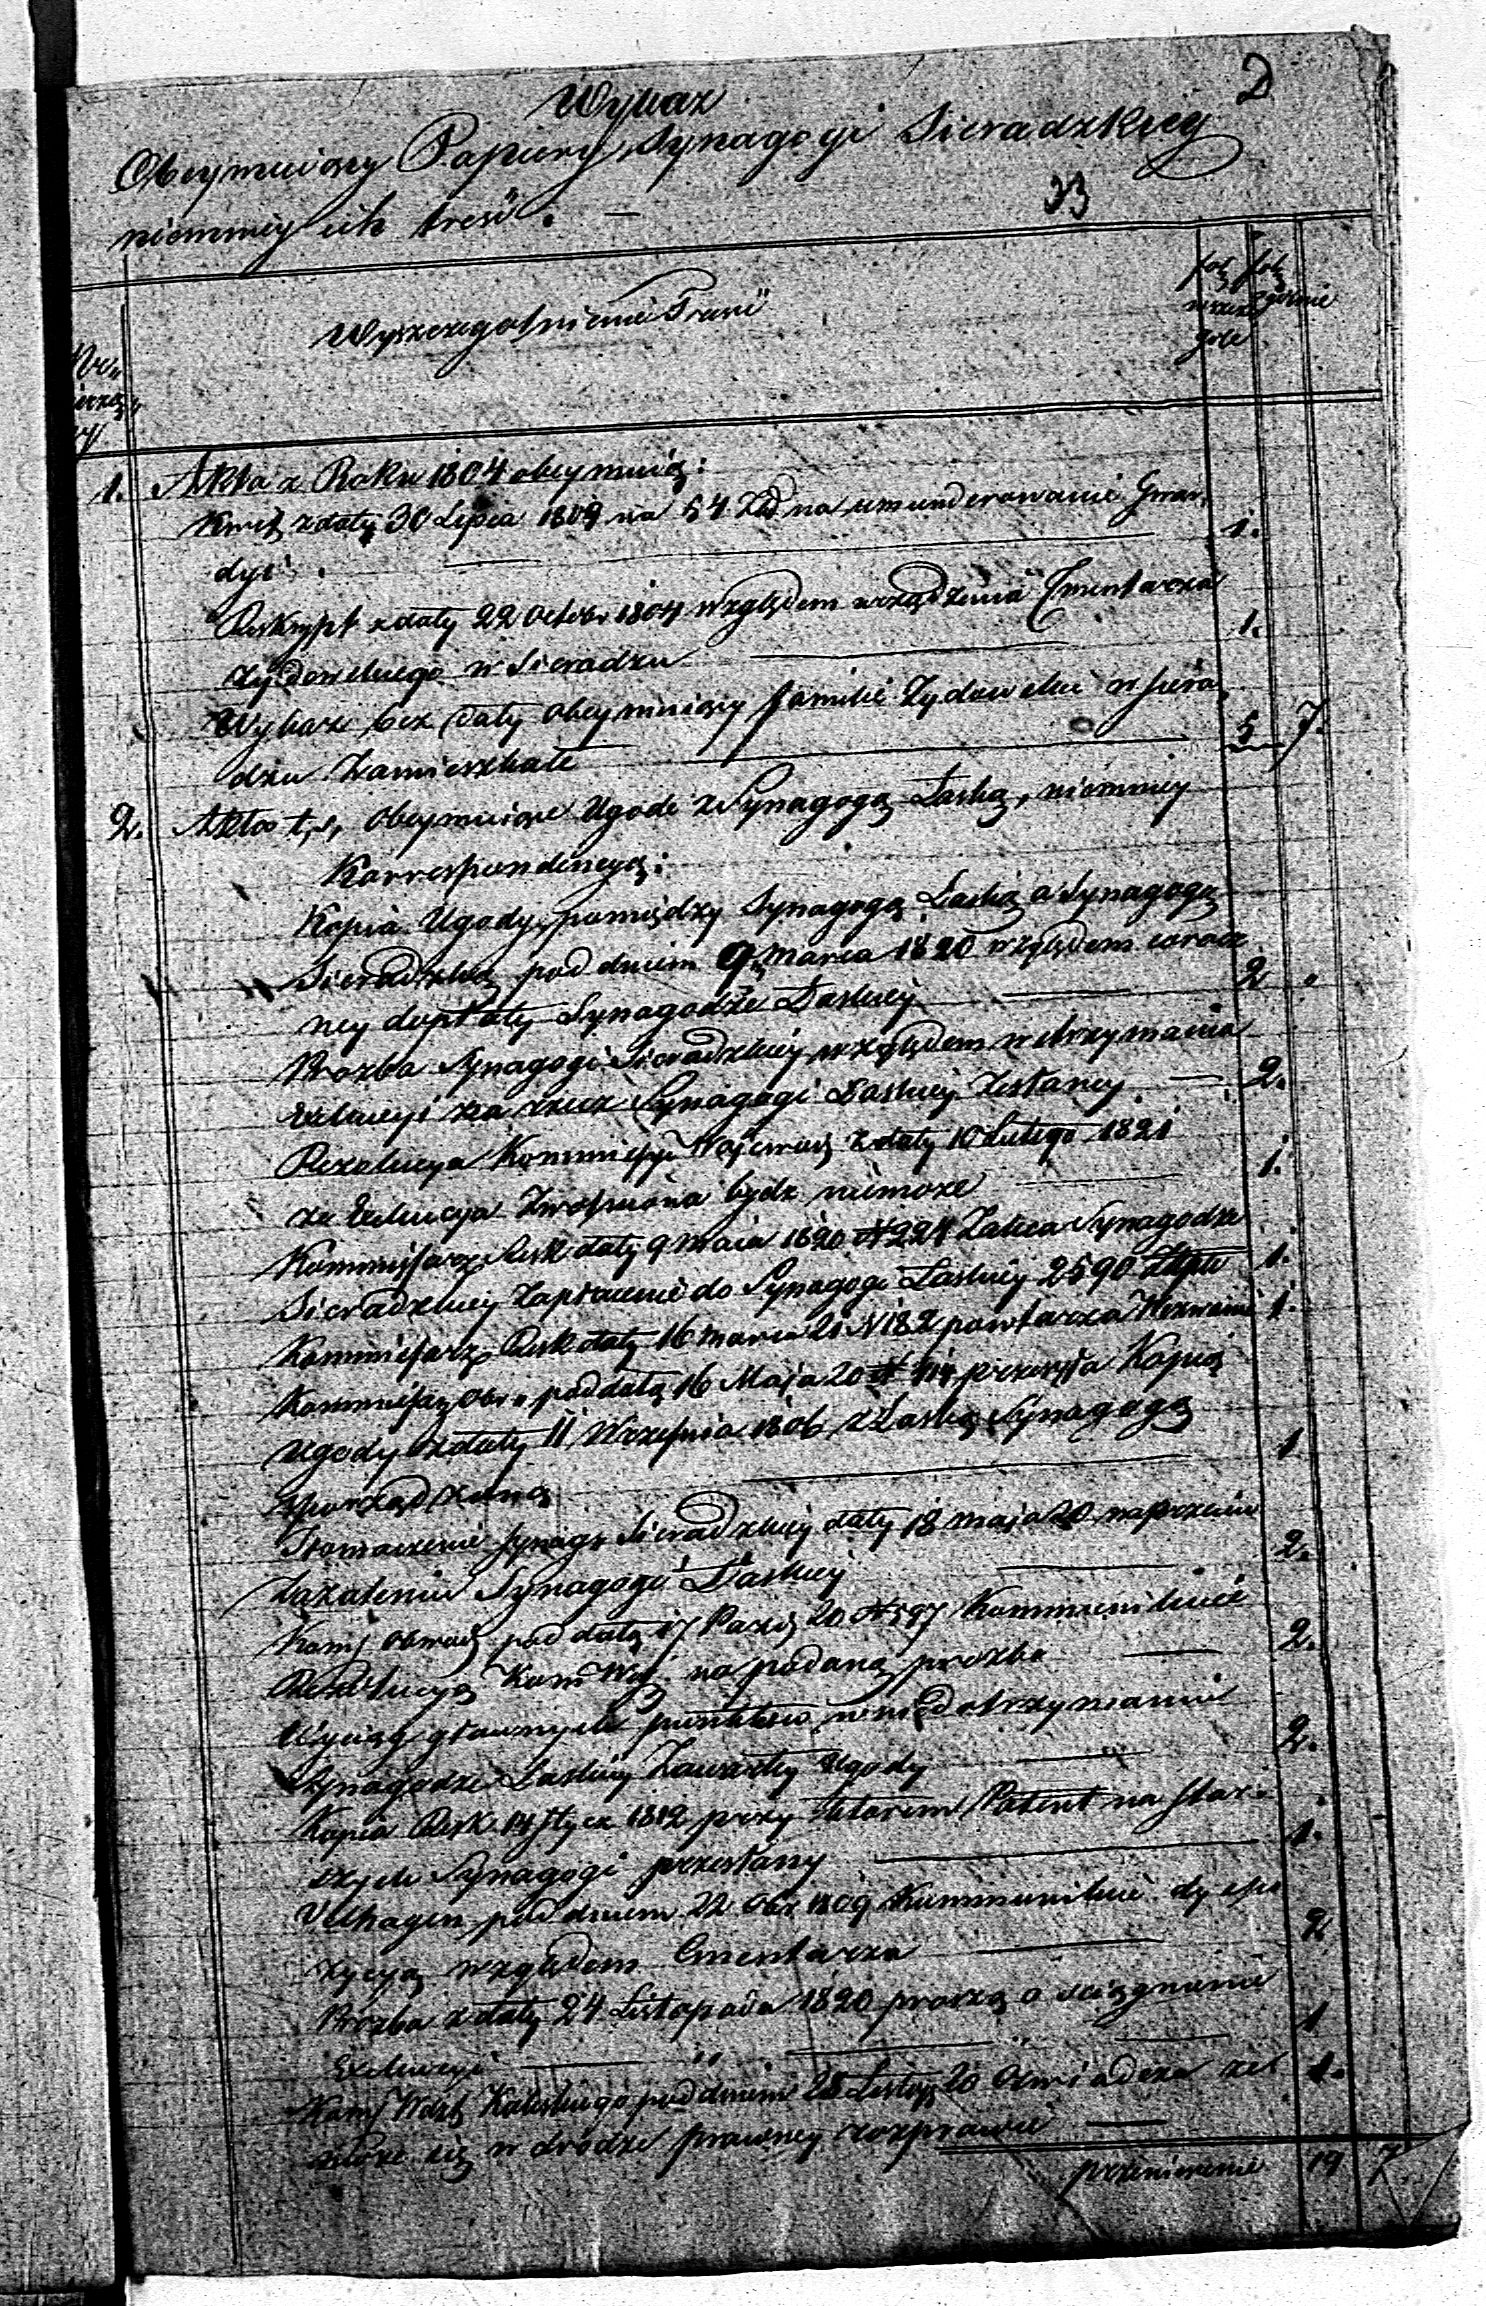 D
Wykaz
Obeymuiący Papiery Synagogi Sieradzkiey
niemniey ich treść. —
33
Wyszczegolnienie Treści
fol. fol.
w szcze gulnie
gole
Nr.
1. Akta z Roku 1804 obeymuią:
Kwit z daty 30 Lipca 1809 na 54 Złt na umunderowanie Gwar
dyi — 1.
Reskrypt z daty 22 Octobr 1804 względem urządzenia Cmentarza
Żydowskiego w Sieradzu — 1.
Wykaz bez daty obeymuiący familie Żydowskie w Siera
dzu Zamieszkałe — 5 7.
2. Akta t. s. obeymuiące Ugode z Synagogą Łaską, niemniey
Korrespondencyą:
Kopia Ugody pomiędzy Synagogą Łaską a Synagogą
Sieradzką pod dniem 9 Marca 1820 względem corocz
ney dopłaty Synagodze Łaskiey — 2
Prozba Synagogi Sieradzkiey względem wstrzymania
Exekucyi na rzecz Synagogi Łaskiey Zesłaney — 2.
Rezolucya Kommissyi Wojewodz z daty 10 Lutego 1821
że Exekucya Zwolniona bydz niemoże — 1.
Kommissarz Resk daty 9 Maia 1820 N 224 Zaleca Synagodze
Sieradzkiey Zapłacenie do Synagogi Łaskiey 2590 Złpo 1.
Kommissarz Resk daty 16 Marca 21 N 182 powtarza Wezwanie 1.
Kommissarz Obw. pod datą 16 Maja 20 N przesyła Kopią
Ugody z daty 11 Września 1806 z Łaską Synagogą
Sporządzoną — 1
Tłomaczenie Synag. Sieradzkiey daty 18 Maja 20 naprzeciw
Zażaleniu Synagogi Łaskiey — 2.
Komis Obwod pod datą 17 Pazdz 20 N 597 Kommunikuie
Rezolucyą Kom Woj. na podaną prozbe — 2.
Wyciąg głownych punktow w niedotrzymaniu
Synagodze Łaskiey Zawartey Ugody — 2.
Kopia Resk 14 Stycz 1812 przy ktorem Patent na Star
szych Synagogi przesłany — 1.
pod dniem 22 Obr 1809 Kommunikuie dyspo
zycyą względem Cmentarza — 2
Prozba z daty 24 Listopada 1820 proszą o sciągnienie
Exekucyi — " — 1
Komis Wdzt Kaliskiego pod dniem 28 Listop 20 Oświadcza że 1.
może się w drodze prawney rozprawić —
przeniesienie 19 7.